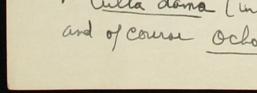 dama (in
and of course Ocho